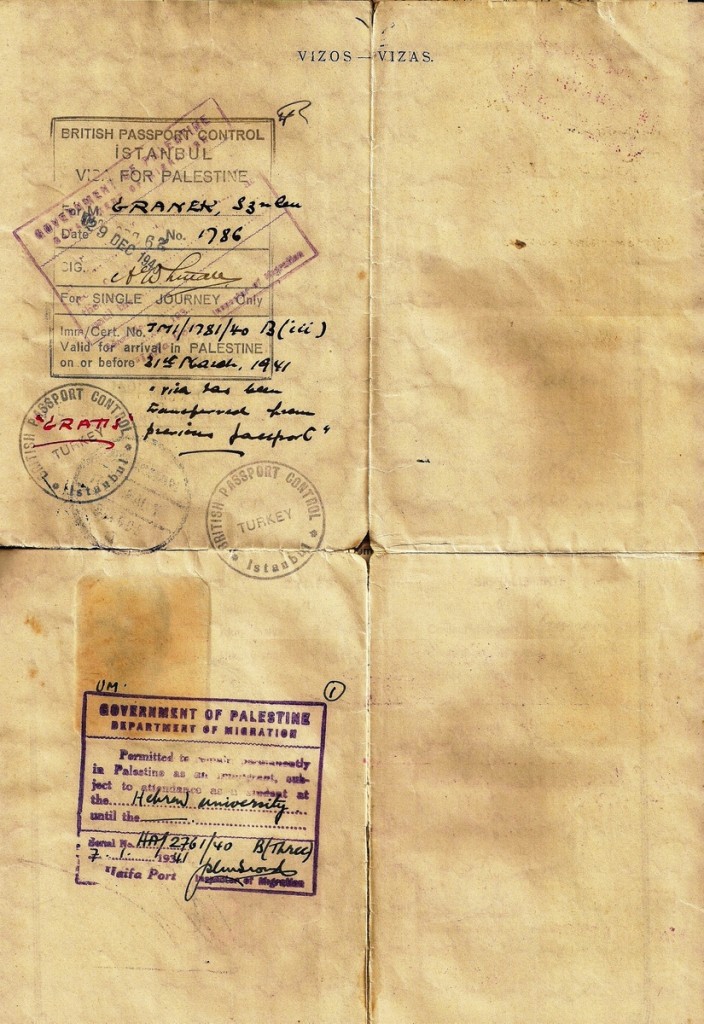 VIZOS — VIZAS.
BRITISH PASSPORT CONTROL
İSTANBUL
VIZA FOR PALESTINE
For M. GRANEK, Szulem
Date 29 DEC 1940 No. 1786
SIG.
For SINGLE JOURNEY Only
Imm/Cert. No. 7M1/1781/40 B(iii)
Valid for arrival in PALESTINE
on or before 31st March, 1941
"visa has been
transferred from
previous passport"
"GRATIS"
BRITISH PASSPORT CONTROL
TURKEY
Istanbul
BRITISH PASSPORT CONTROL
TURKEY
Istanbul
GOVERNMENT OF PALESTINE
Inspector of Migration
UM.
1
GOVERNMENT OF PALESTINE
DEPARTMENT OF MIGRATION
Permitted to remain permanently
in Palestine as an immigrant, sub-
ject to attendance as a student at
the Hebrew University
until the
Serial No. HA/2761/40 B(Three)
7. 1. 1941
Haifa Port Inspector of Migration